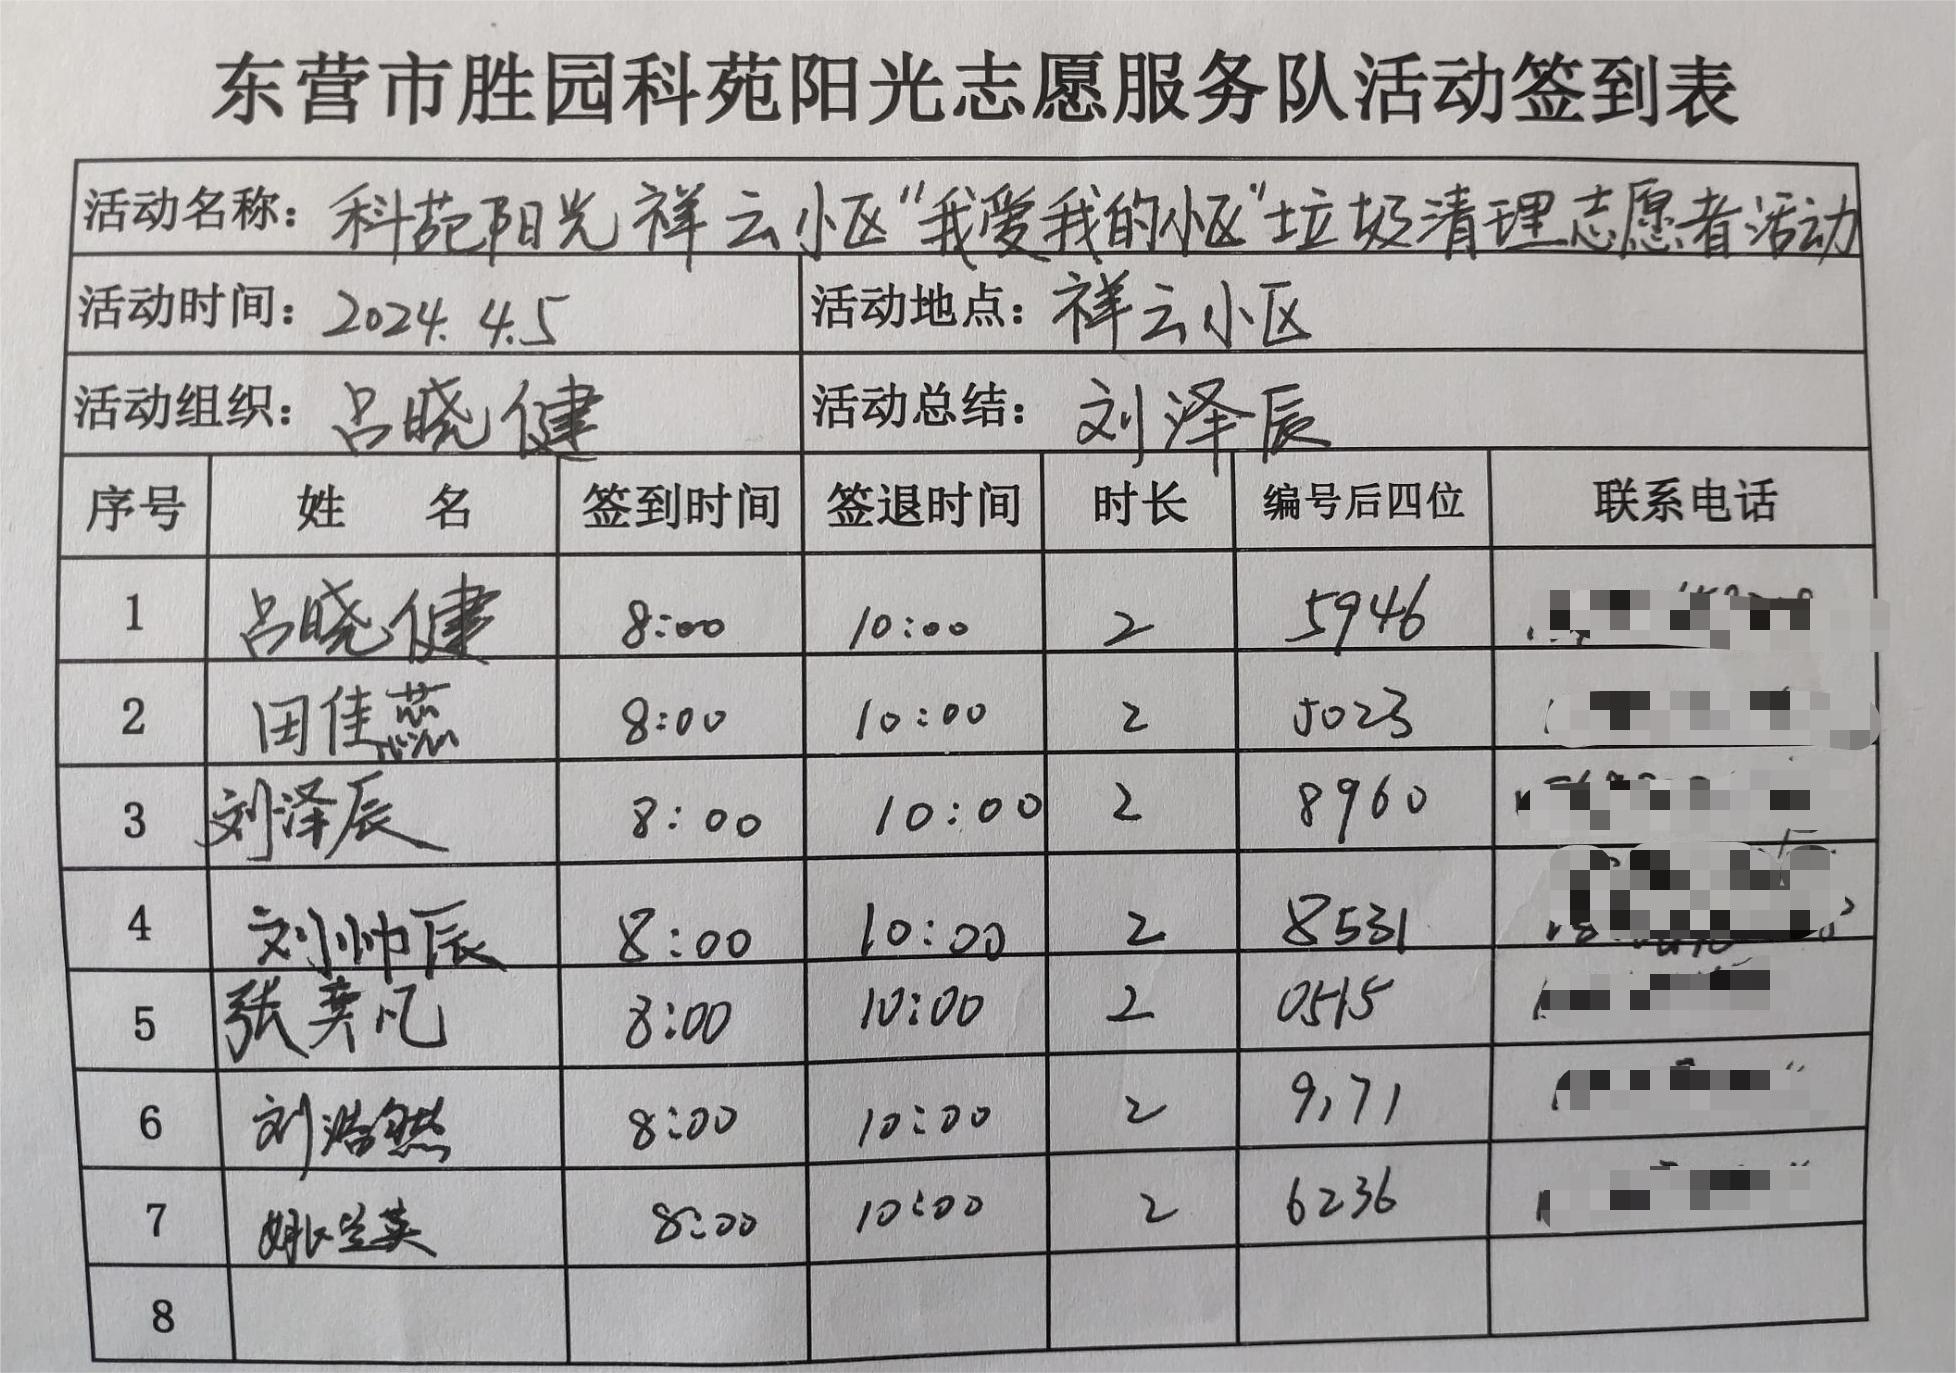 东营市胜园科苑阳光志愿服务队活动签到表
活动名称：科苑阳光祥云小区"我爱我的小区"垃圾清理志愿者活动
活动时间：2024.4.5 活动地点：祥云小区
活动组织：吕晓健 活动总结：刘泽辰
序号 姓名 签到时间 签退时间 时长 编号后四位 联系电话
1 吕晓健 8:00 10:00 2 5946
2 田佳蕊 8:00 10:00 2 5023
3 刘泽辰 8:00 10:00 2 8960
4 刘帅辰 8:00 10:00 2 8531
5 张奕凡 8:00 10:00 2 0515
6 刘浩然 8:00 10:00 2 9171
7 姚兰英 8:00 10:00 2 6236
8